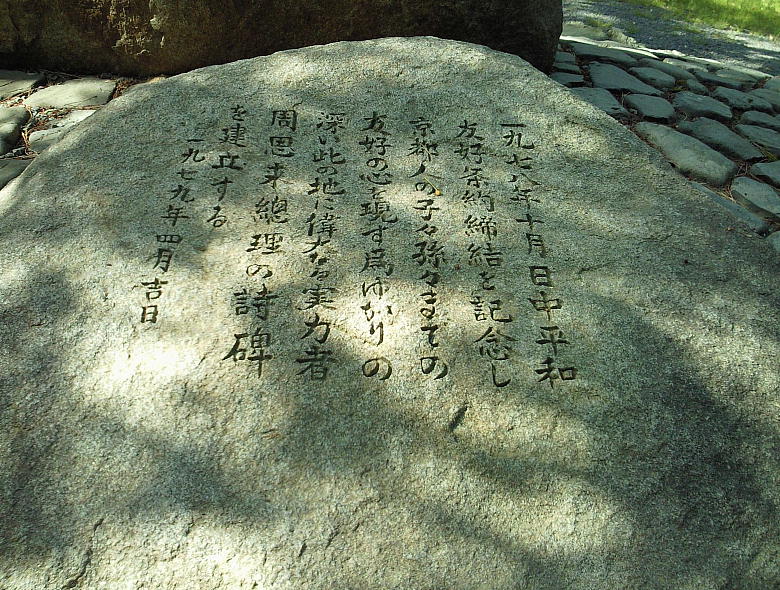 一九七八年十月日中平和
友好条約締結を記念し
京都人の子々孫々までの
友好の心を現す為ゆかりの
深い此の地に偉大なる実力者
周恩来總理の詩碑
を建立する
一九七九年四月吉日